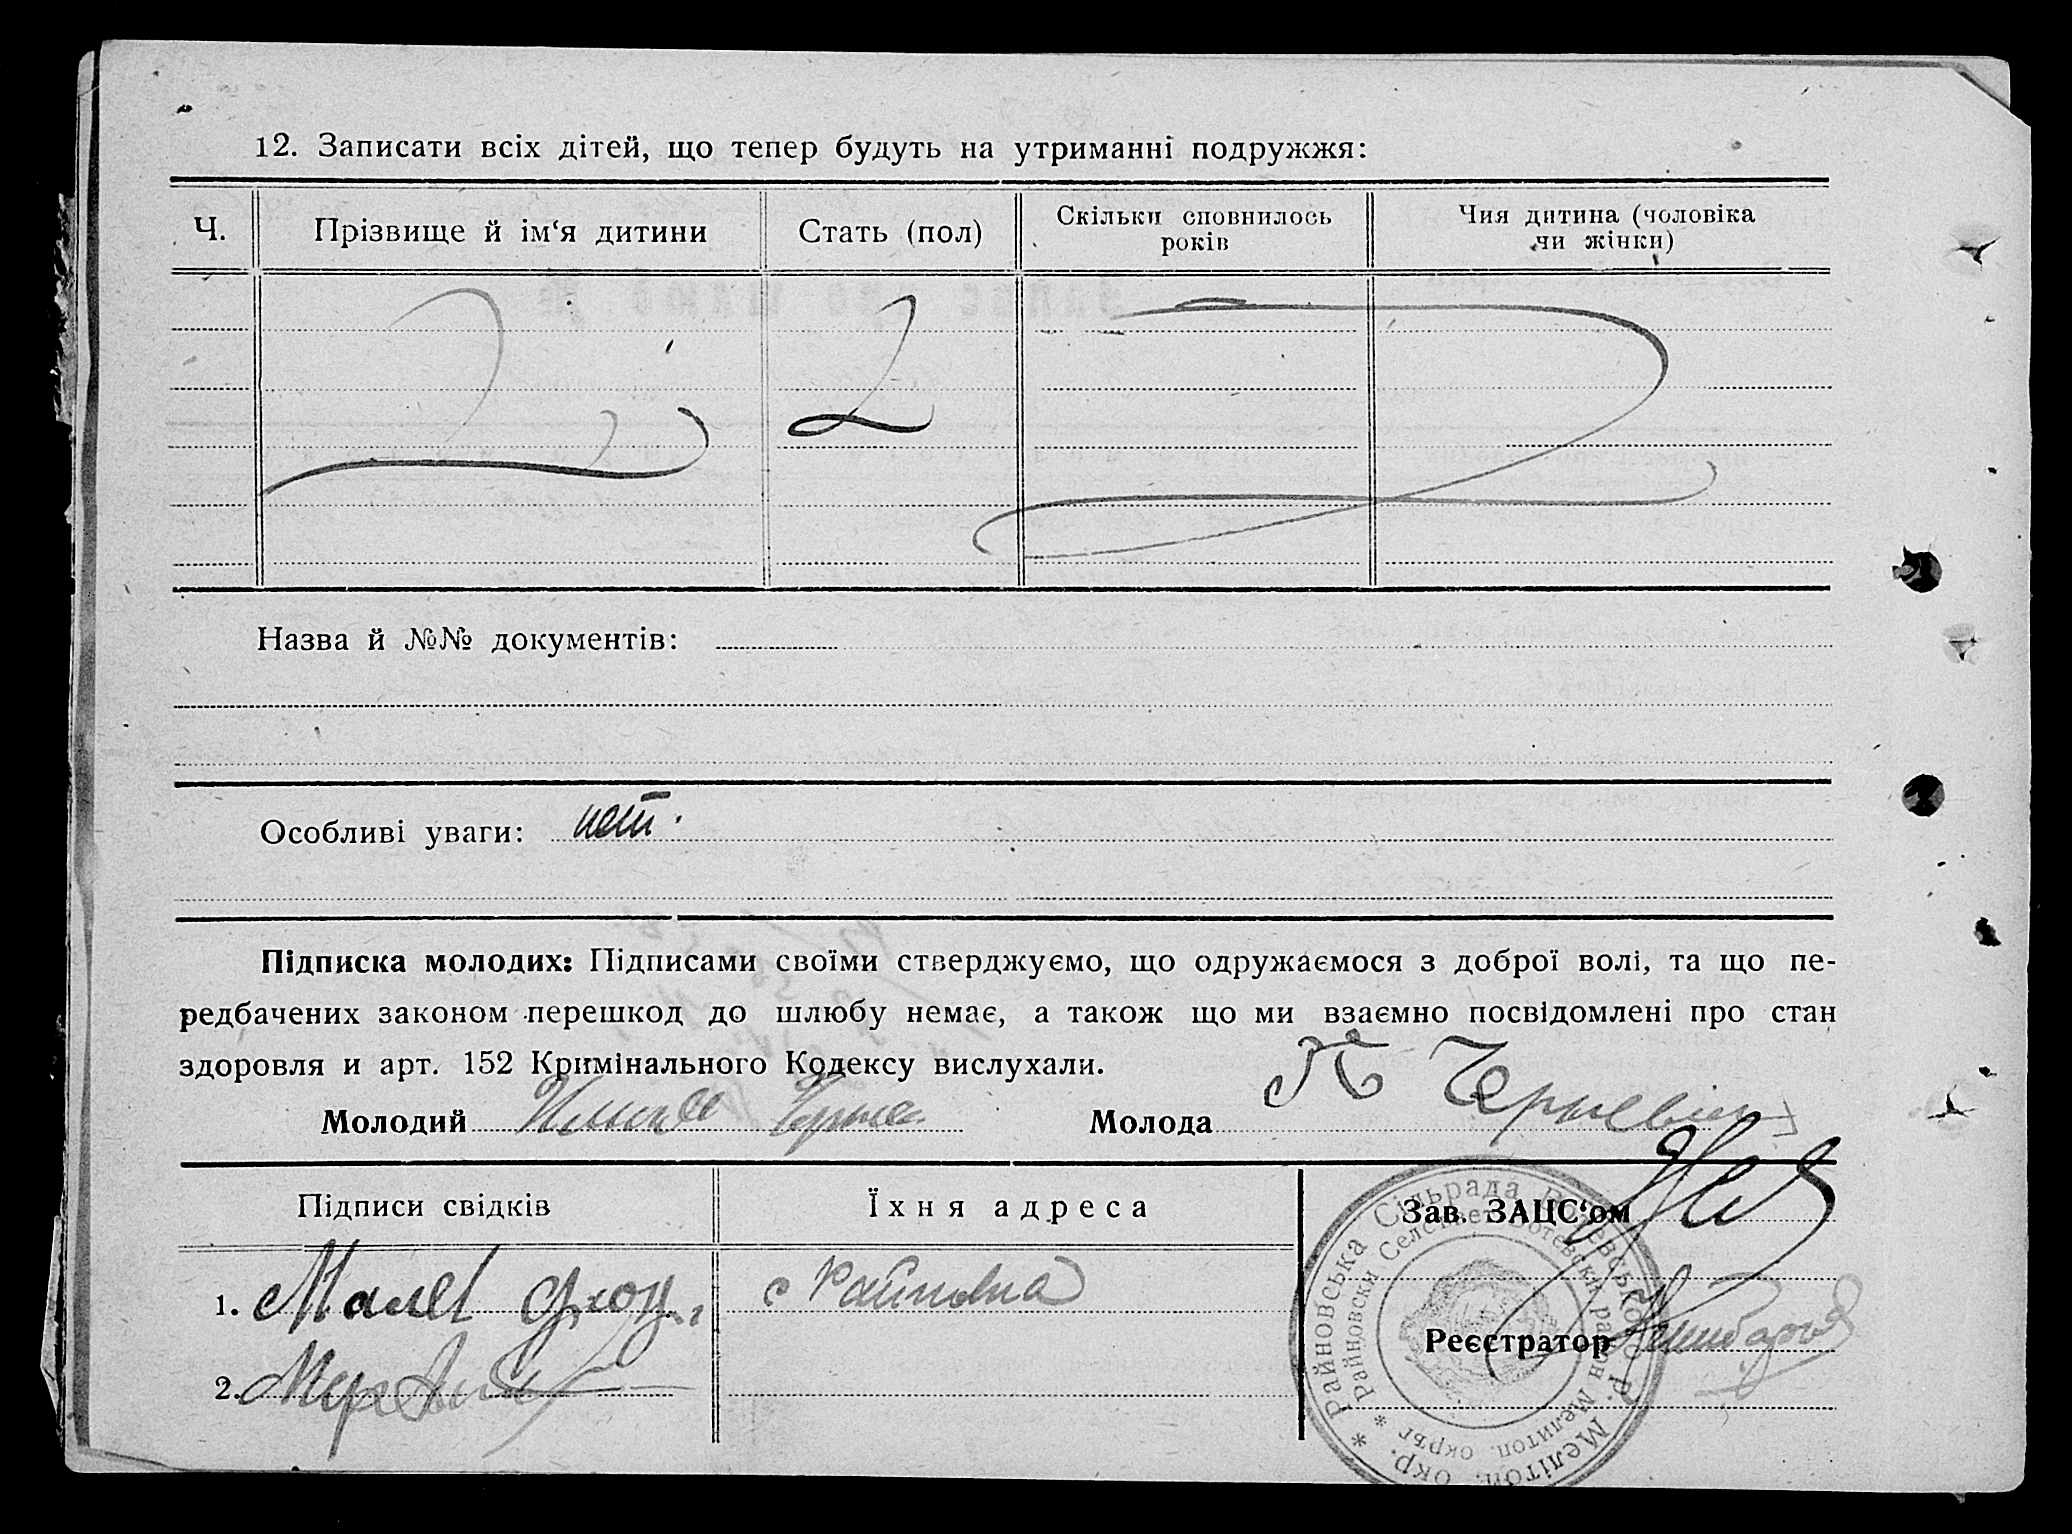 12. Записати всіх дітей, що тепер будуть на утриманні подружжя:
Ч.
Прізвище й ім‘я дитини
Стать (пол)
Скільки сповнилось
років
Чия дитина (чоловіка
чи жінки)
Назва й №№ документів:
Особливі уваги: нет.
Підписка молодих: Підписами своїми стверджуємо, що одружаємося з доброї волі, та що пе-
редбачених законом перешкод до шлюбу немає, а також що ми взаємно посвідомлені про стан
здоровля и арт. 152 Кримінального Кодексу вислухали.
Молодий
Молода
Підписи свідків
Їхня адреса
Зав. ЗАЦС‘ом
1.
с Райновка
Реєстратор
2.
Райновська Сільрада Ботєвського р. Меліто​п. окр.
Райновски Селсъвет Ботевски район Мелитоп. окръг